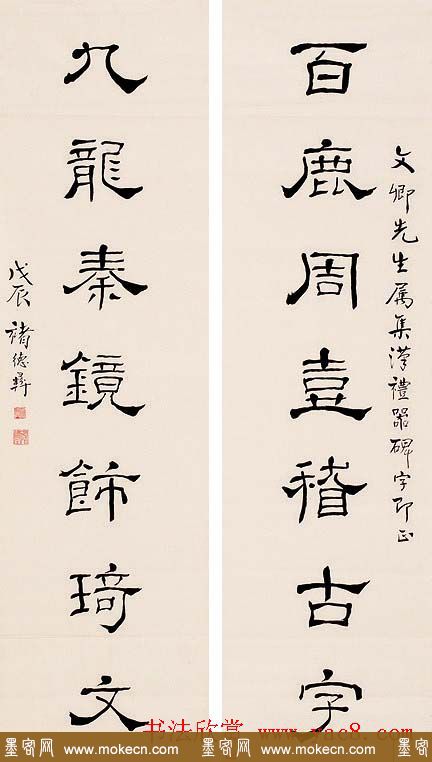 文卿先生属集漢禮器碑字即正
百鹿周壺稽古字
九龍秦鏡飾琦文
戊辰 褚德彝
书法欣赏 www.yac8.com
墨客网 www.mokecn.com 墨客网 www.mokecn.com 墨客网 www.mokecn.com 墨客网